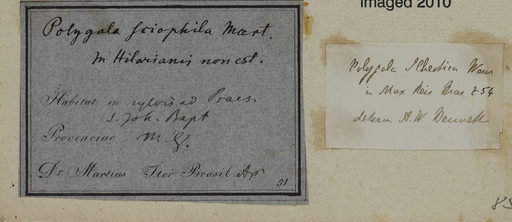 Imaged 2010
Polygala sciophila Mart.
in Hilarianis non est.
Habitat in sylvis ad Praes.
S. Joh. Bapt
Provinciae M. G.
Dr Martius Iter Brasil Ap
31
Polygala Ilheotica Wawr
in Max Reis Bras. t 54
determ A. W. Bennett